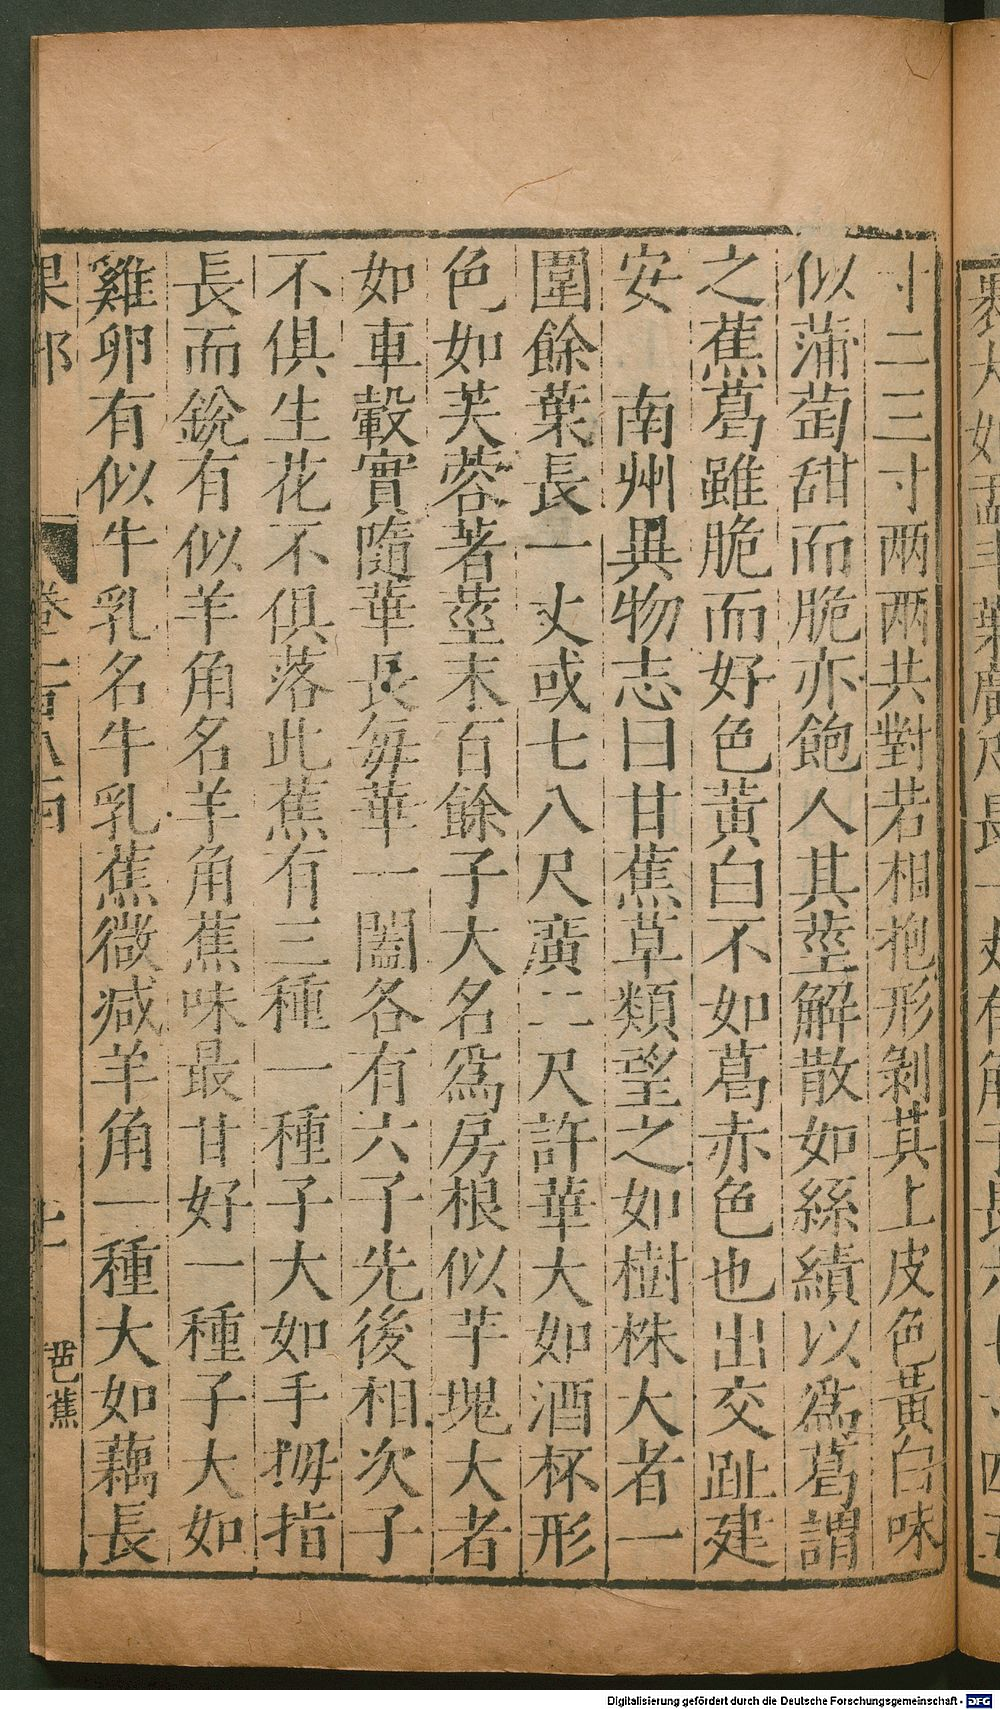 寸二三寸两两共對若相抱形剝其上皮色黃白味
似蒲萄甜而脆亦飽人其莖解散如絲績以爲葛謂
之蕉葛雖脆而好色黃白不如葛赤色也出交趾建
安　南州異物志曰甘蕉草類望之如樹株大者一
圍餘葉長一丈或七八尺廣二尺許華大如酒杯形
色如芙蓉著莖末百餘子大名爲房根似芋塊大者
如車轂實隨華長每華一闔各有六子先後相次子
不俱生花不俱落此蕉有三種一種子大如手拇指
長而銳有似羊角名羊角蕉味最甘好一種子大如
雞卵有似牛乳名牛乳蕉微减羊角一種大如藕長
果部
卷一百八百
十一
芭蕉
Digitalisierung gefördert durch die Deutsche Forschungsgemeinschaft - DFG